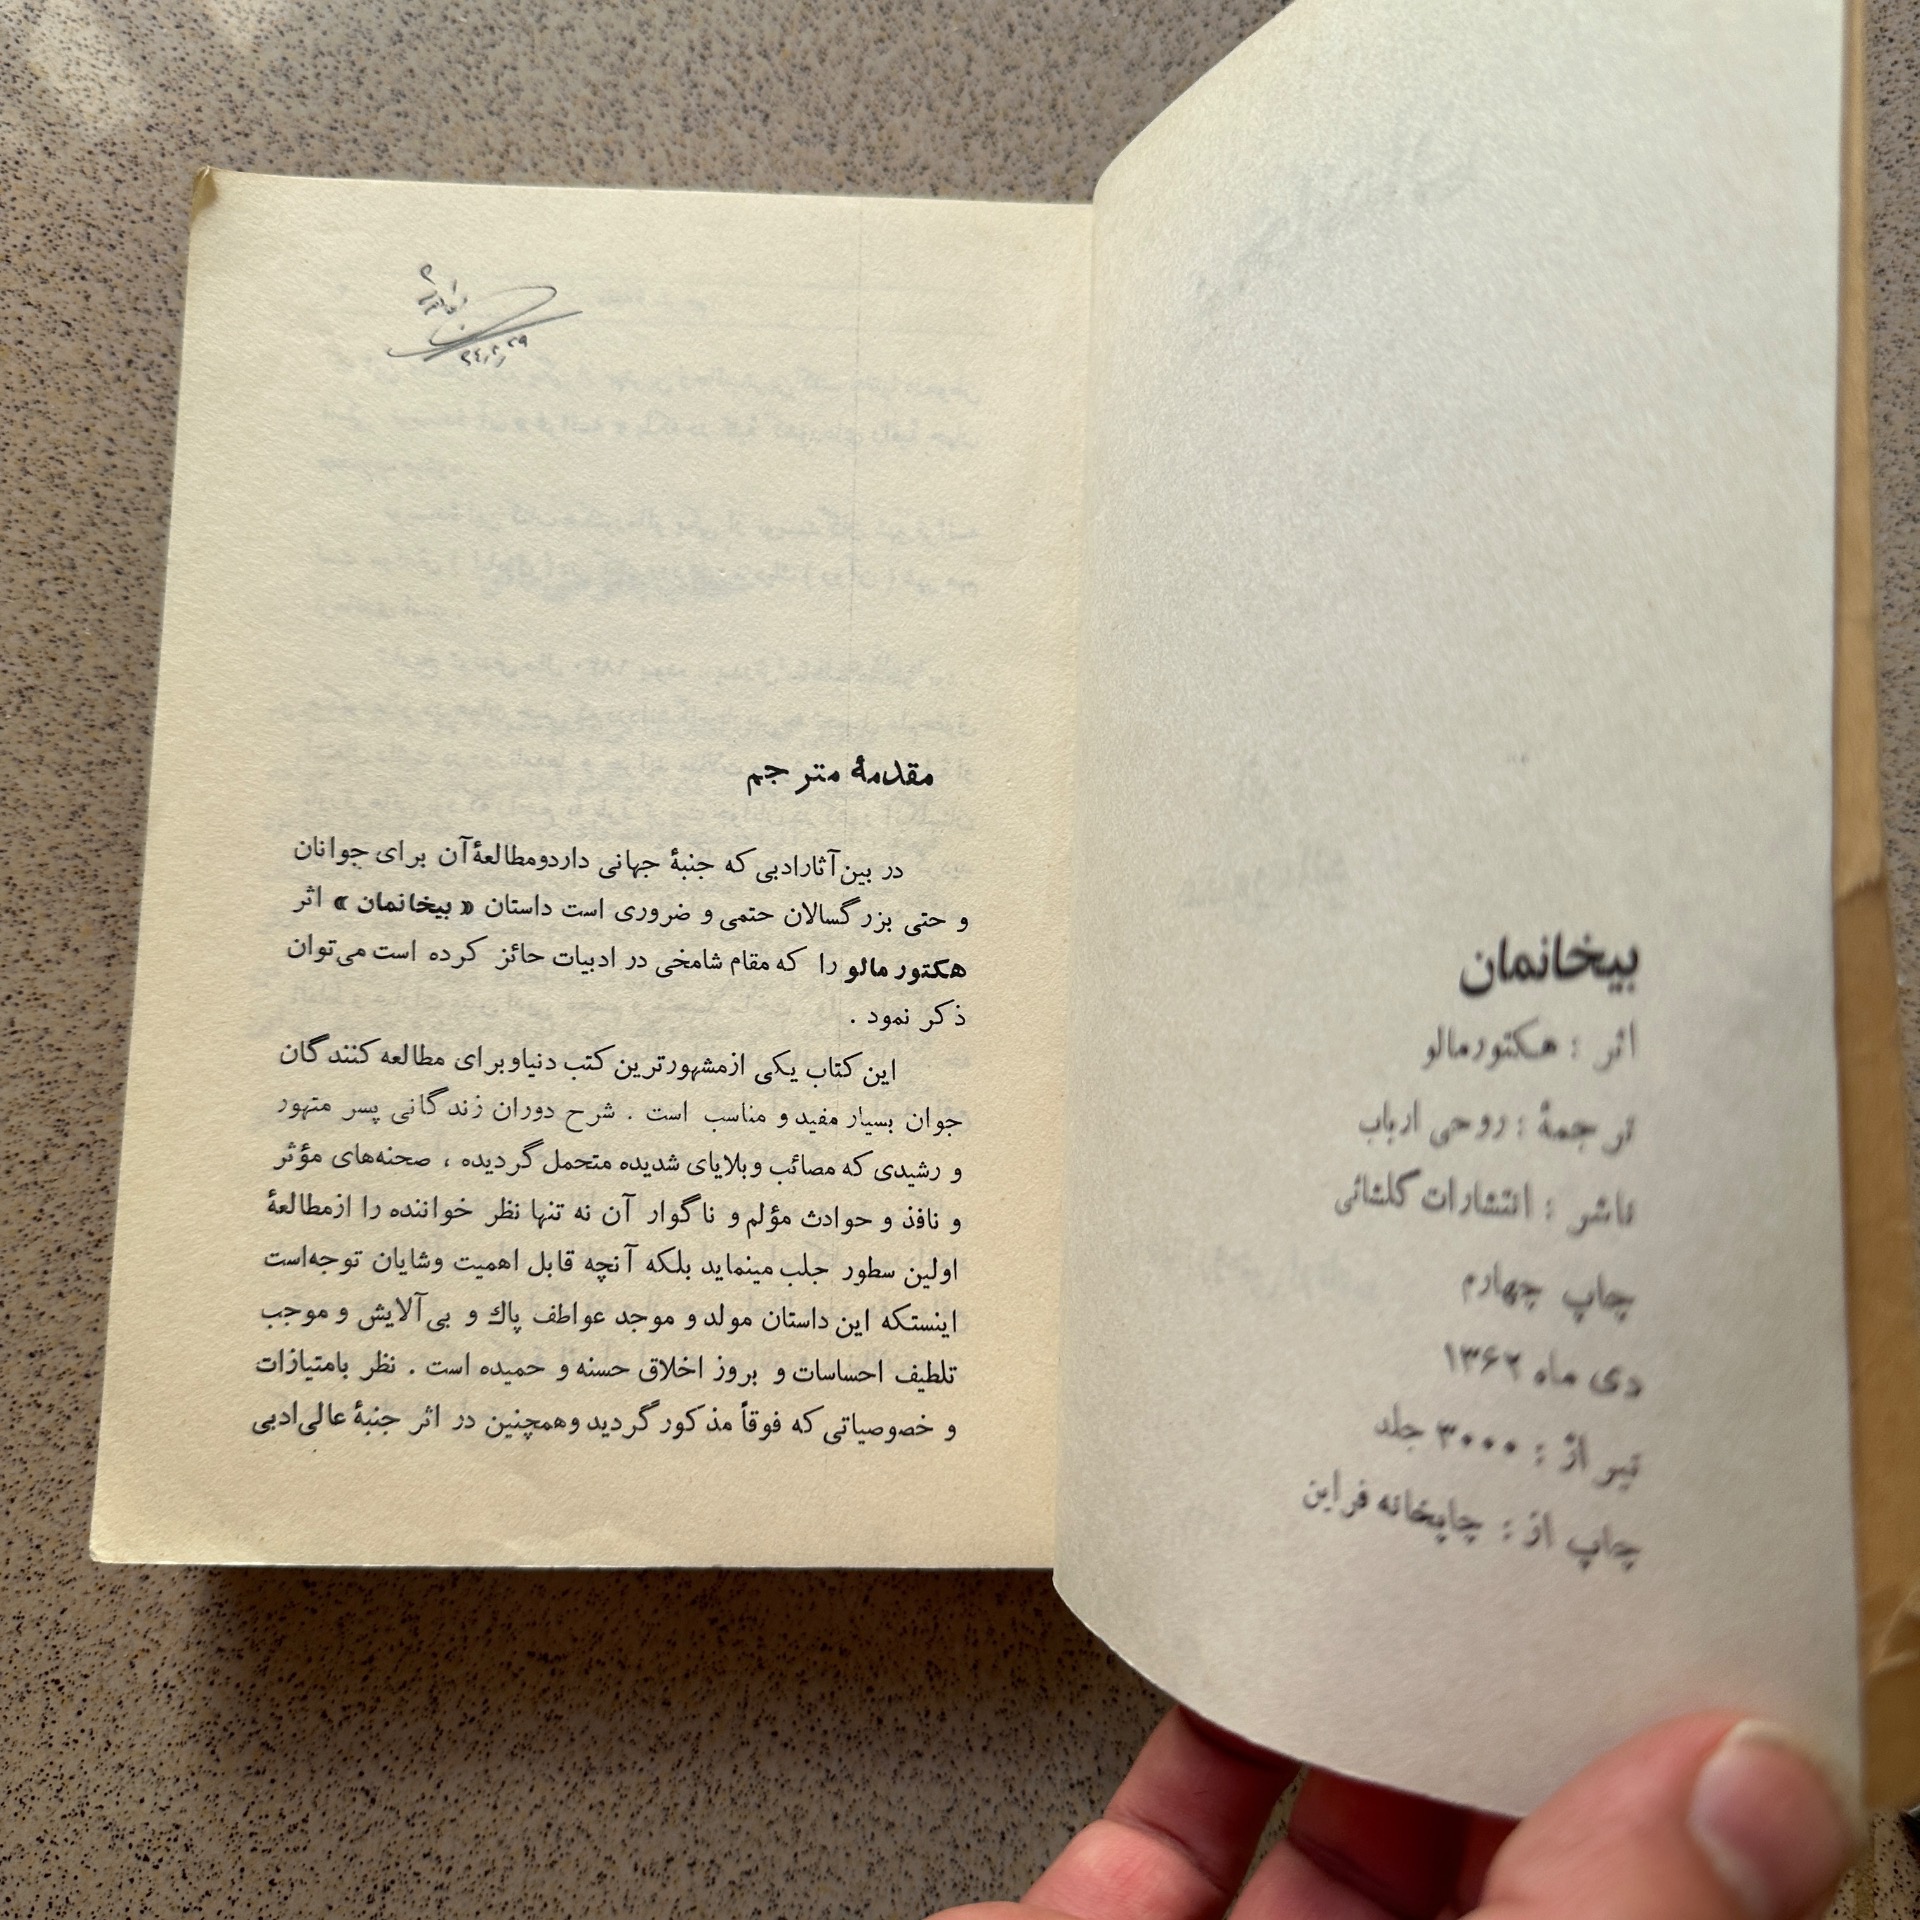 بیخانمان
اثر : هکتورمالو
ترجمهٔ : روحی ارباب
ناشر : انتشارات گلشائی
چاپ چهارم
دی ماه ۱۳۶۲
تیراژ : ۳۰۰۰ جلد
چاپ از : چاپخانه فراین
مقدمهٔ مترجم
در بین آثار ادبی که جنبهٔ جهانی دارد و مطالعهٔ آن برای جوانان
و حتی بزرگسالان حتمی و ضروری است داستان « بیخانمان » اثر
هکتور مالو را که مقام شامخی در ادبیات حائز کرده است می‌توان
ذکر نمود .
این کتاب یکی از مشهورترین کتب دنیا و برای مطالعه کنندگان
جوان بسیار مفید و مناسب است . شرح دوران زندگانی پسر متهور
و رشیدی که مصائب و بلایای شدیده متحمل گردیده ، صحنه‌های مؤثر
و نافذ و حوادث مؤلم و ناگوار آن نه تنها نظر خواننده را از مطالعهٔ
اولین سطور جلب مینماید بلکه آنچه قابل اهمیت و شایان توجه‌است
اینستکه این داستان مولد و موجد عواطف پاك و بی‌آلایش و موجب
تلطیف احساسات و بروز اخلاق حسنه و حمیده است . نظر بامتیازات
و خصوصیاتی که فوقاً مذکور گردید و همچنین در اثر جنبهٔ عالی ادبی